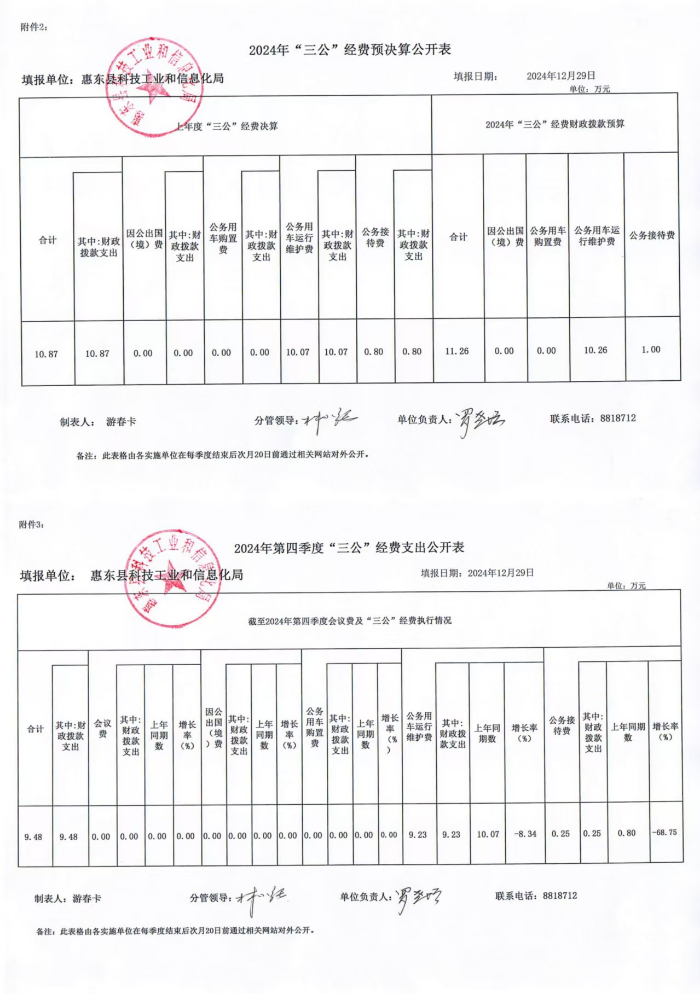 附件2：
2024年“三公”经费预决算公开表
填报单位：惠东县科技工业和信息化局 填报日期： 2024年12月29日
单位：万元
上年度“三公”经费决算 2024年“三公”经费财政拨款预算
合计 其中:财政拨款支出 因公出国（境）费 其中:财政拨款支出 公务用车购置费 其中:财政拨款支出 公务用车运行维护费 其中:财政拨款支出 公务接待费 其中:财政拨款支出 合计 因公出国（境）费 公务用车购置费 公务用车运行维护费 公务接待费
10.87 10.87 0.00 0.00 0.00 0.00 10.07 10.07 0.80 0.80 11.26 0.00 0.00 10.26 1.00
制表人： 游春卡 分管领导： 单位负责人： 联系电话：8818712
备注：此表格由各实施单位在每季度结束后次月20日前通过相关网站对外公开。
附件3：
2024年第四季度“三公”经费支出公开表
填报单位： 惠东县科技工业和信息化局 填报日期：2024年12月29日
单位：万元
截至2024年第四季度会议费及“三公”经费执行情况
合计 其中:财政拨款支出 会议费 其中:财政拨款支出 上年同期数 增长率（%） 因公出国（境）费 其中:财政拨款支出 上年同期数 增长率（%） 公务用车购置费 其中:财政拨款支出 上年同期数 增长率（%） 公务用车运行维护费 其中:财政拨款支出 上年同期数 增长率（%） 公务接待费 其中:财政拨款支出 上年同期数 增长率（%）
9.48 9.48 0.00 0.00 0.00 0.00 0.00 0.00 0.00 0.00 0.00 0.00 0.00 0.00 9.23 9.23 10.07 -8.34 0.25 0.25 0.80 -68.75
制表人：游春卡 分管领导： 单位负责人： 联系电话：8818712
备注：此表格由各实施单位在每季度结束后次月20日前通过相关网站对外公开。